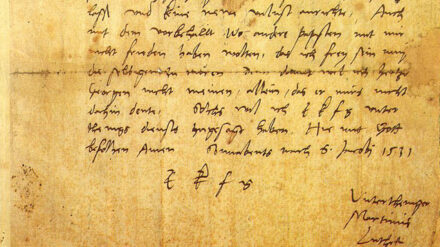 laß und keine newe unlust anrichte, Auch
mit dem vorbehallt Wo andere papisten mit mir
nicht frieden haben wolten, das ich frey sein mug
die selbigen
Georgen nicht meinen, allein, das er mirs nicht
dahin deute, Solchs wil ich E k f g unter
thenigs dienste angesagt haben. Hie mit Gott
befolhen Amen Sonnabents nach S. Jacobi 1531
E k f g
Untertheniger
Martinus
Luther